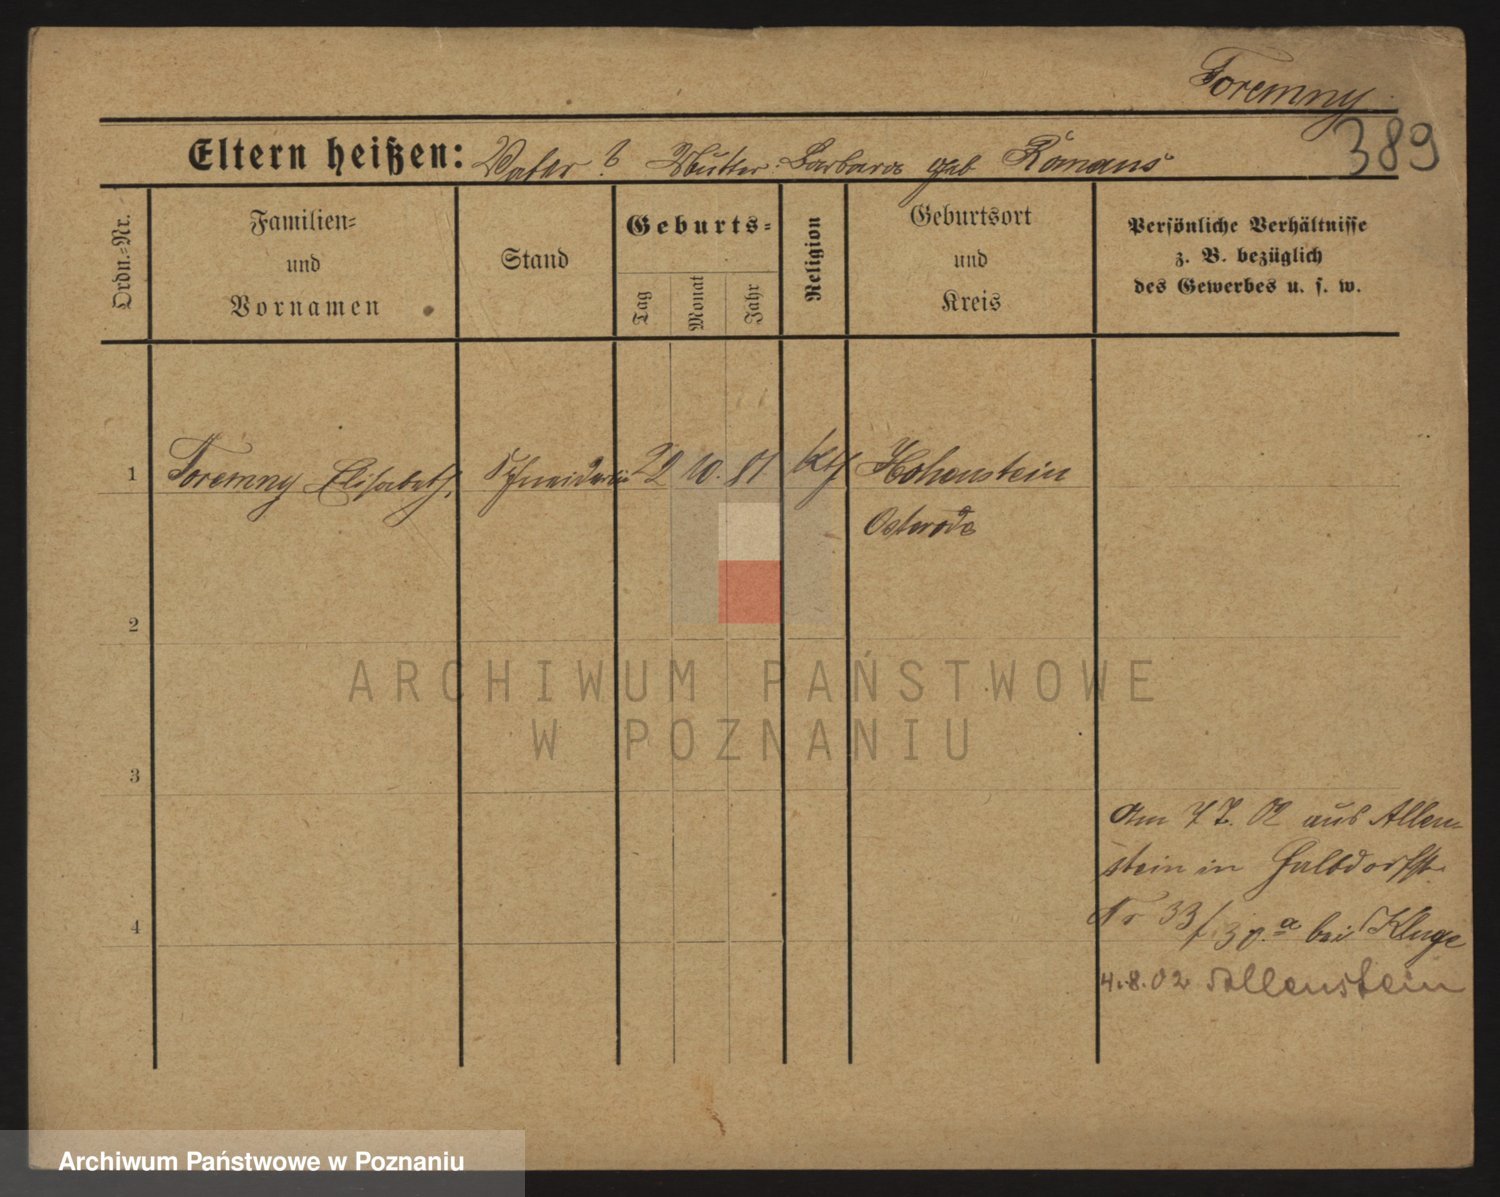 Foremny
389
Eltern heißen: Vater ? Mutter Barbara geb Romans
Ordn.-Nr.
Familien-
und
Vornamen
Stand
Geburts-
Tag
Monat
Jahr
Religion
Geburtsort
und
Kreis
Persönliche Verhältnisse
z. B. bezüglich
des Gewerbes u. s. w.
1
Foremny Elisabeth
Schneiderin
22
10.
81
kth
Hohenstein
Osterode
2
3
4
Am 7 7. 02 aus Allen-
stein in Halbdorfstr.
Nr 33/30.a bei Kluge
4.8.02 Allenstein
ARCHIWUM PAŃSTWOWE
W POZNANIU
Archiwum Państwowe w Poznaniu